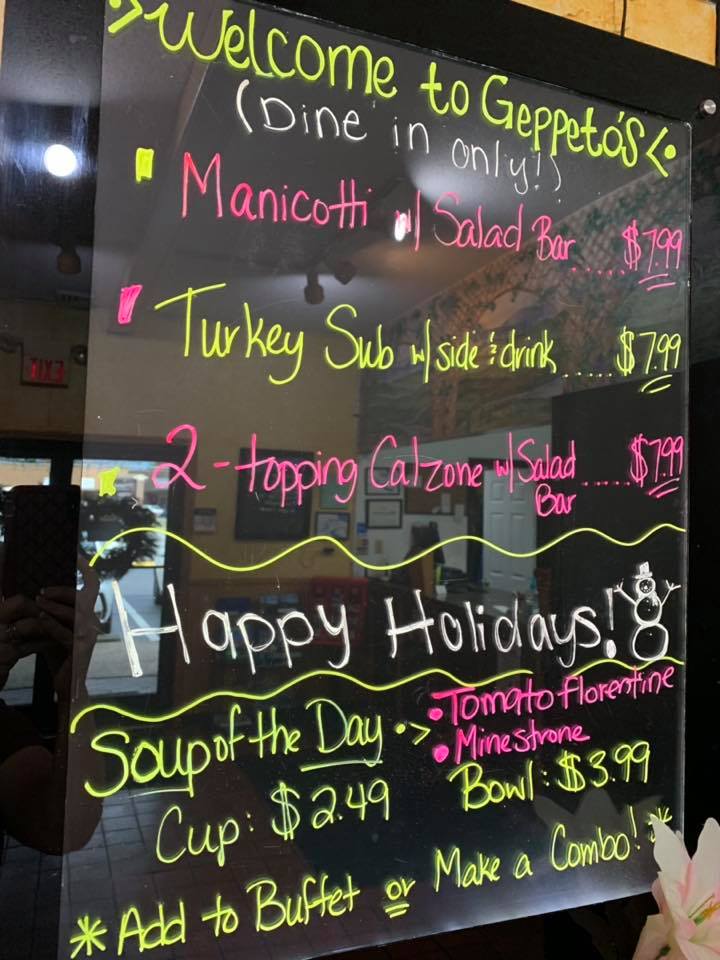 Welcome to Geppeto's
(Dine in only!)
Manicotti w/ Salad Bar ..... $7.99
Turkey Sub w/ side & drink ..... $7.99
2-topping Calzone w/ Salad Bar ..... $7.99
Happy Holidays!
Soup of the Day •> • Tomato Florentine
• Minestrone
Cup: $2.49 Bowl: $3.99
* Add to Buffet or Make a Combo! *
EXIT